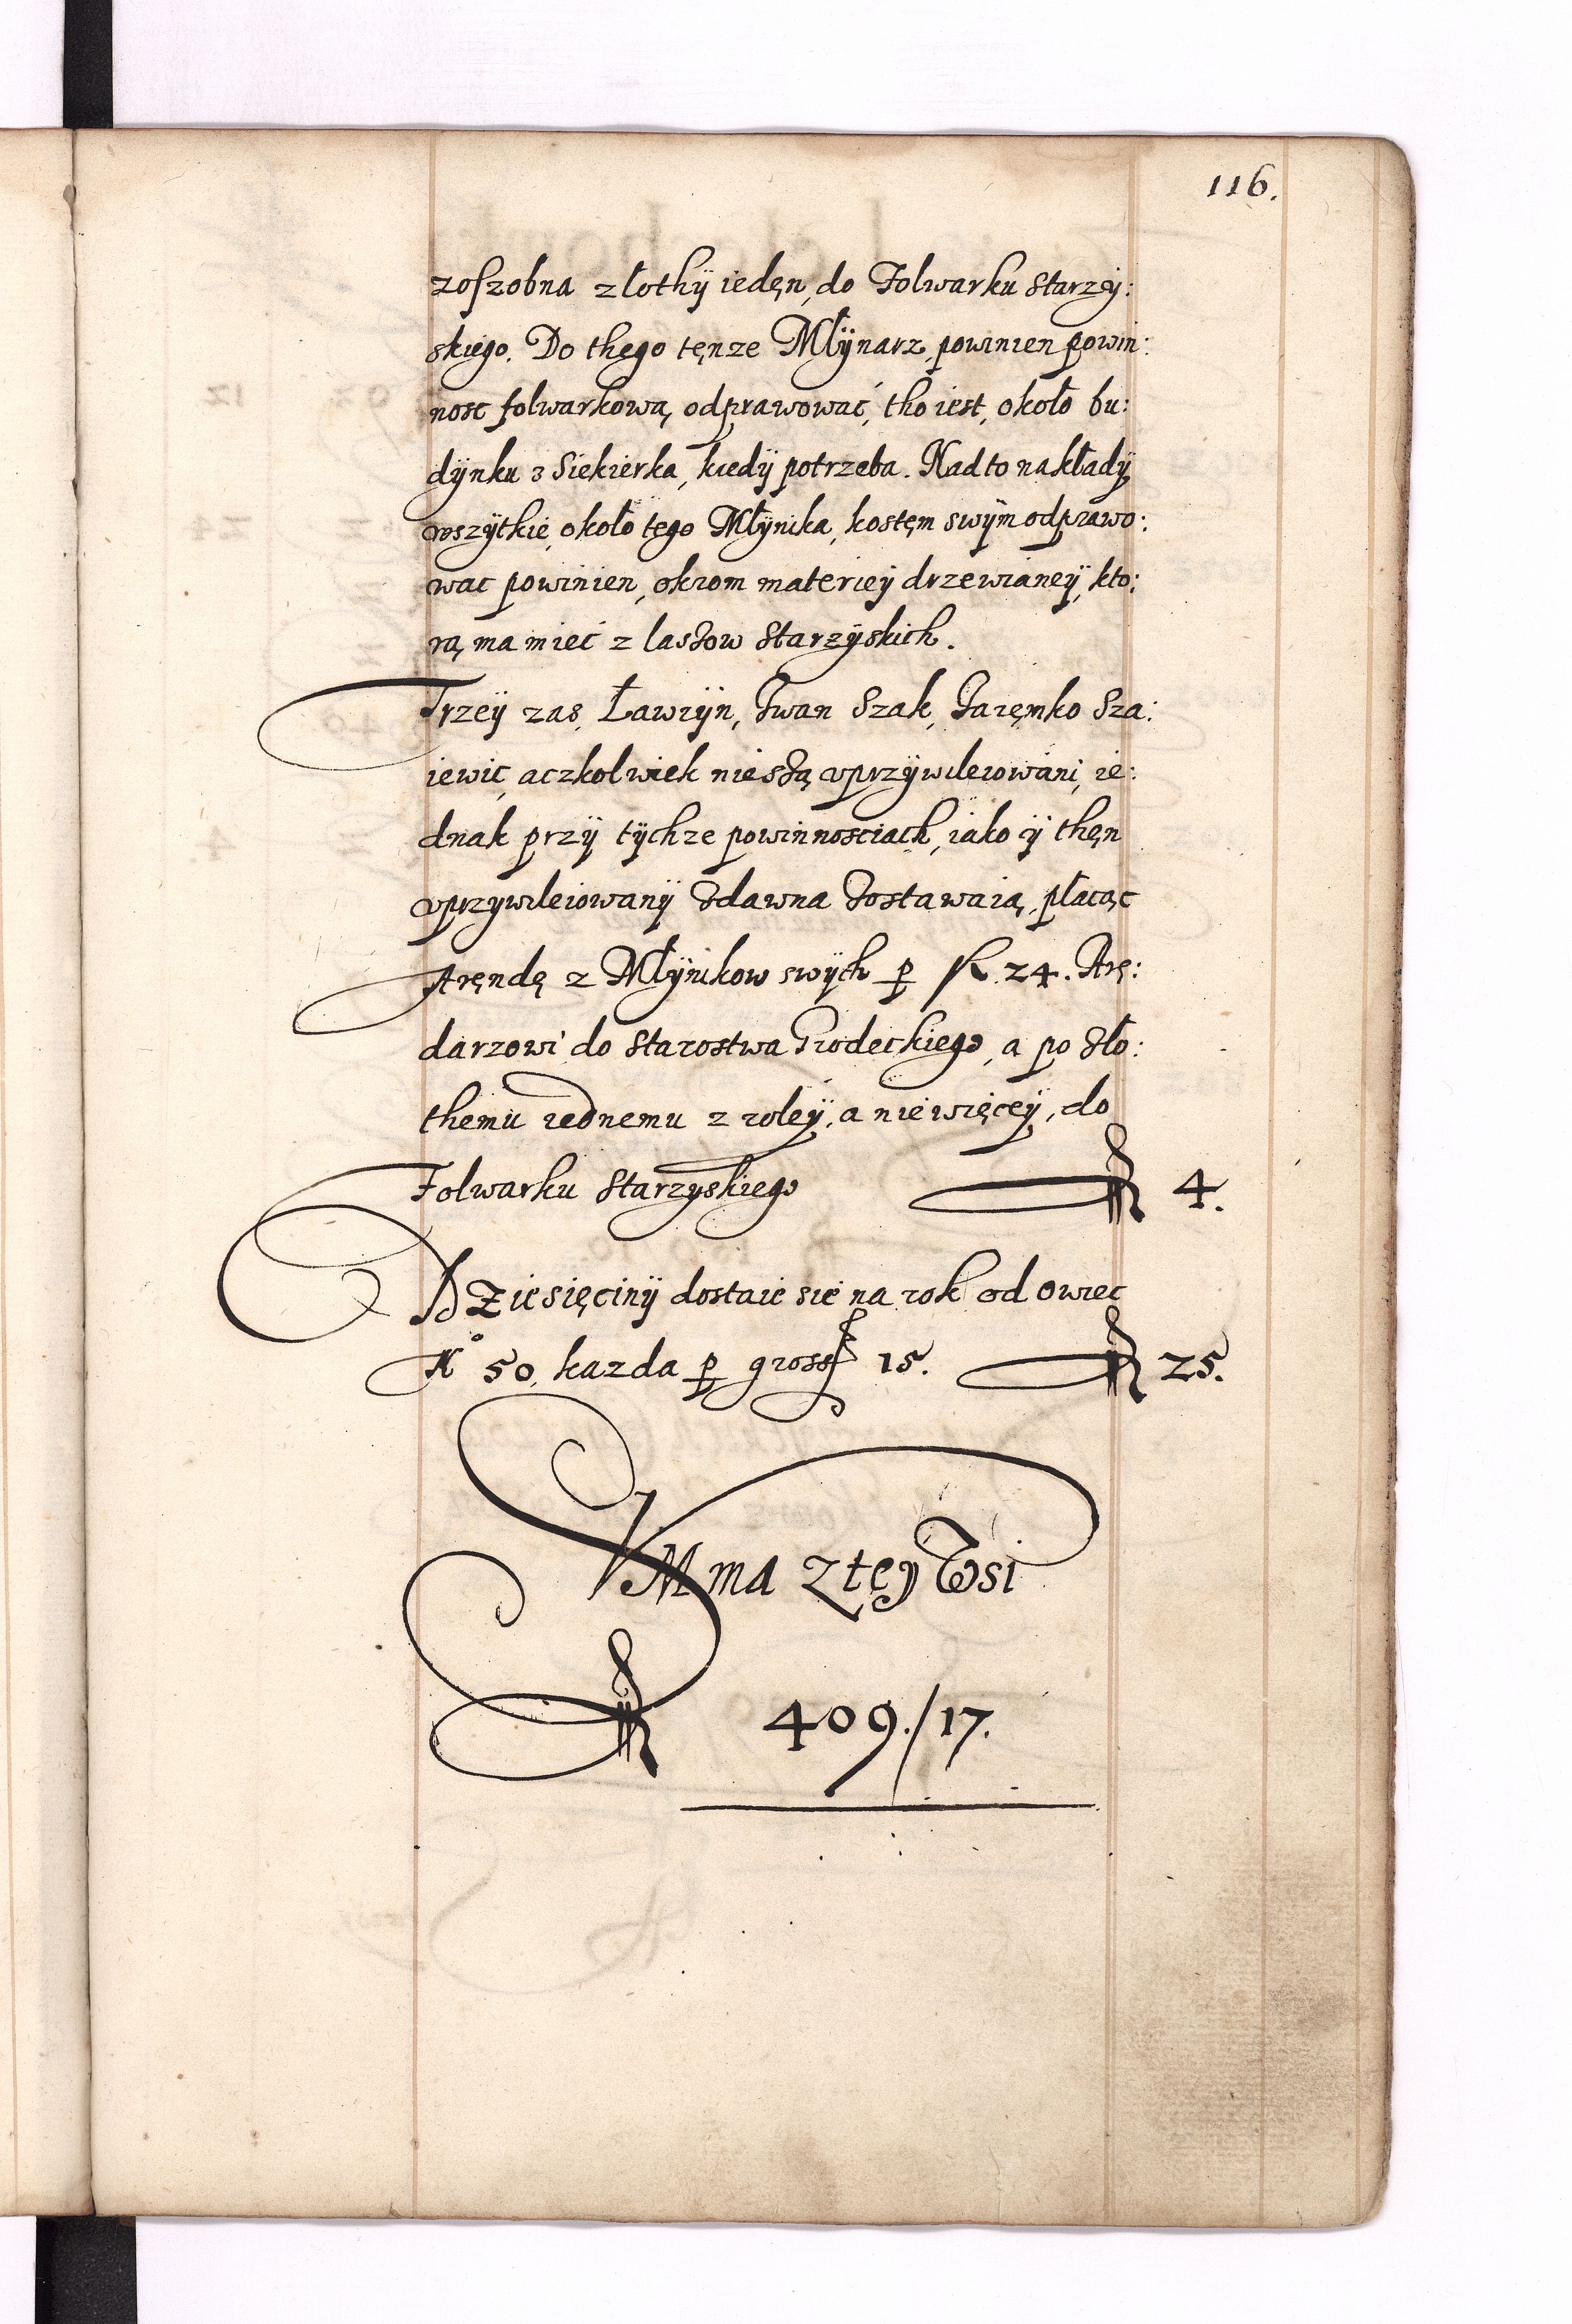 116.
zoszobna złothÿ iedęn, do Folwarku Starzÿ:
skiego. Do thego tęnze Młÿnarz, powinien powin:
nosc folwarkową odprawować, tho iest, około bu:
dÿnku z Siekierka, kiedÿ potrzeba. Nad to nakładÿ
wszÿtkie, około tego Młÿnika, kostęm swÿm odprawo:
wac powinien, okrom materieÿ drzewianeÿ, kto:
rą ma mieć z lassow Starzÿskich.
Trzeÿ zas, Ławrÿn, Iwan Szak, Jaręmko Sza:
iewic, aczkolwiek nie są vprzÿwileiowani, ie:
dnak przÿ tÿchze powinnosciach, iako ÿ thęn
vprzywileiowanÿ zdawna zostawaią, płacąc
Aręndę z Młÿnikow swÿch p fl. 24. Arę:
darzowi do Starostwa Grodeckiego, a po zło:
themu iednemu z roleÿ, a nie więceÿ, do
Folwarku Starzyskiego fl 4.
Dziesięcinÿ dostaie sie na rok od owiec
No 50, kazda p gross 15. fl 25.
SVMma z tey Wsi
fl 409./17.